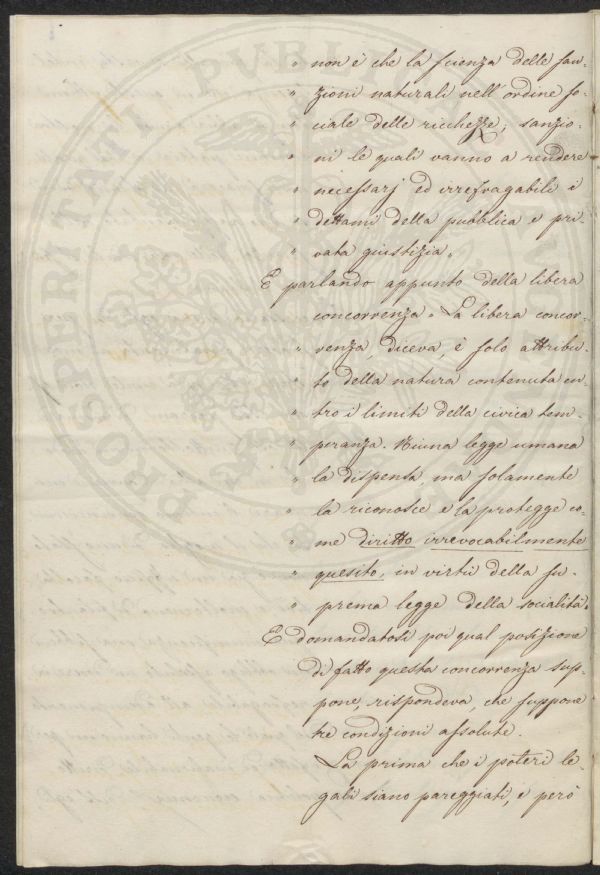 " non è che la scienza delle san-
" zioni naturali nell'ordine so-
" ciale delle ricchezze; sanzio-
" ni le quali vanno a rendere
" necessarj ed irrefragabili i
" dettami della pubblica e pri-
" vata giustizia.
E parlando appunto della libera
concorrenza " La libera concor-
" renza, diceva, è solo attribu-
" to della natura contenuta en-
" tro i limiti della civica tem-
" peranza. Niuna legge umana
" la dispensa, ma solamente
" la riconosce e la protegge co-
" me diritto irrevocabilmente
" quesito, in virtù della su-
" prema legge della socialità.
E domandatosi poi qual posizione
di fatto questa concorrenza sup-
pone, rispondeva, che suppone
tre condizioni assolute.
La prima che i poteri le-
gali siano pareggiati, e però
PROSPERITATI PVBLICAE